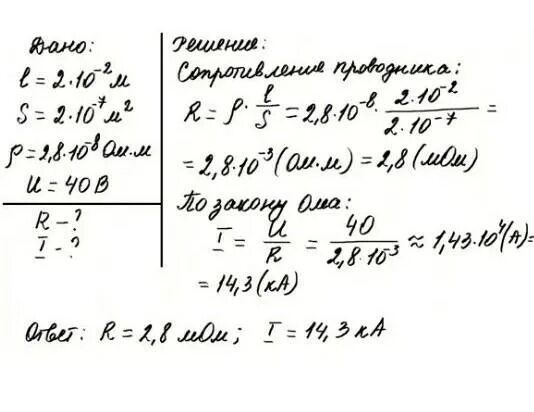 Дано:
l = 2·10⁻² м
S = 2·10⁻⁷ м²
ρ = 2,8·10⁻⁸ Ом·м
U = 40 В
R - ?
I - ?
Решение:
Сопротивление проводника:
R = ρ · l/S = 2,8·10⁻⁸ · 2·10⁻²/2·10⁻⁷ =
= 2,8·10⁻³ (Ом·м) = 2,8 (мОм)
По закону Ома:
I = U/R = 40/2,8·10⁻³ ≈ 1,43·10⁴ (А) =
= 14,3 (кА)
Ответ: R = 2,8 мОм; I = 14,3 кА